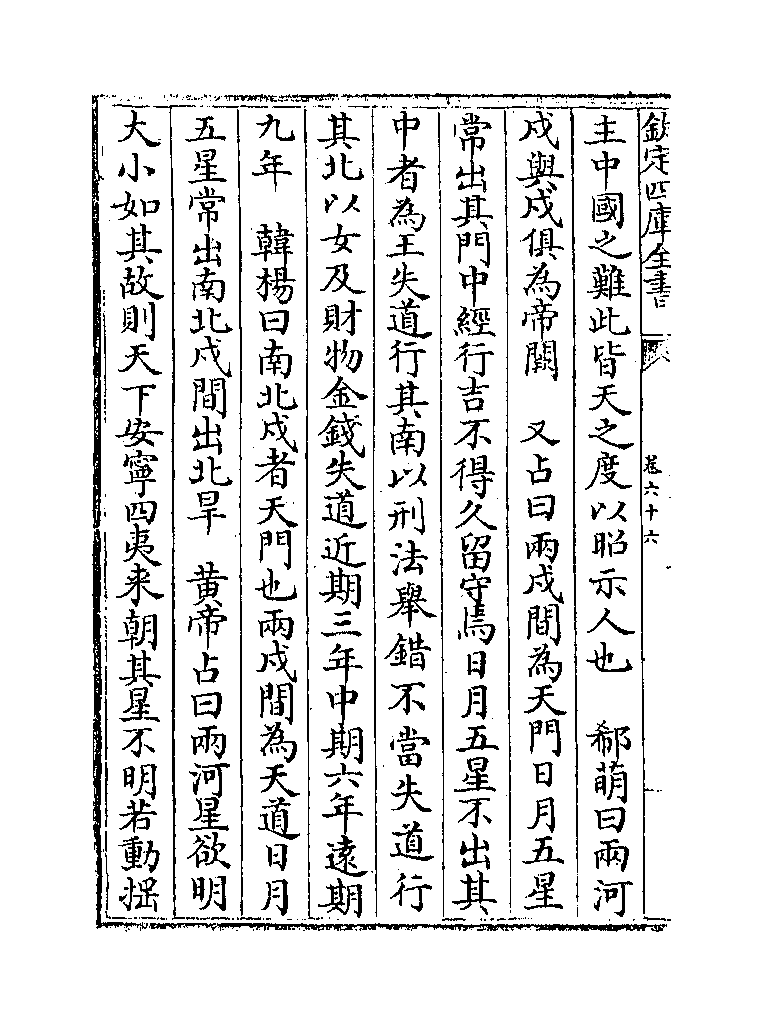 欽定四庫全書
卷六十六
主中國之難此皆天之度以昭示人也　郗萌曰兩河
戍與戍俱為帝闕　又占曰兩戍間為天門日月五星
常出其門中經行吉不得久留守焉日月五星不出其
中者為王失道行其南以刑法舉錯不當失道行
其北以女及財物金錢失道近期三年中期六年遠期
九年　韓楊曰南北戍者天門也兩戍間為天道日月
五星常出南北戍間出北旱　黄帝占曰兩河星欲明
大小如其故則天下安寧四夷来朝其星不明若動揺